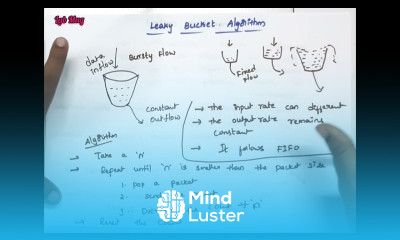 Lyb Mug
Leaky Bucket Algorithm
data
inflow
Bursty flow
Fixed
flow
Constant
Outflow
→ the input rate can different
→ the output rate remains
constant
→ It follows FIFO
Algorithm
→ Take a 'n'
→ Repeat until 'n' is smaller than the packet size
1. pop a packet
2.
3.
Mind
Luster